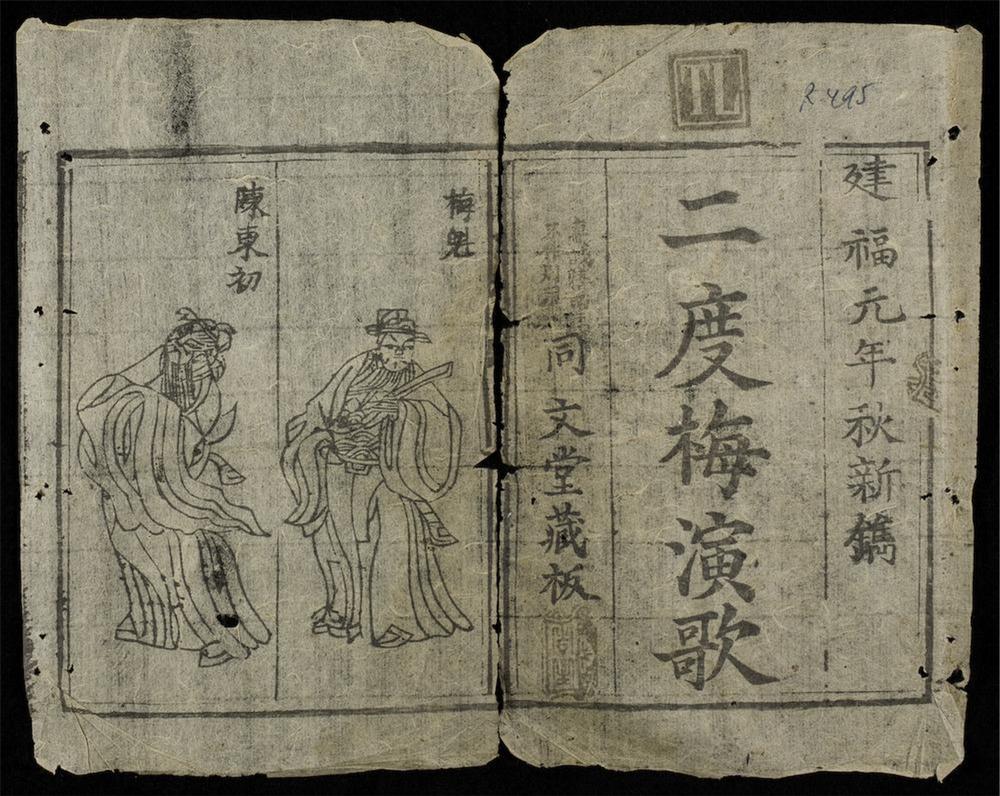 TL
R 495
建福元年秋新鐫
二度梅演歌
同文堂藏板
梅魁
陳東初